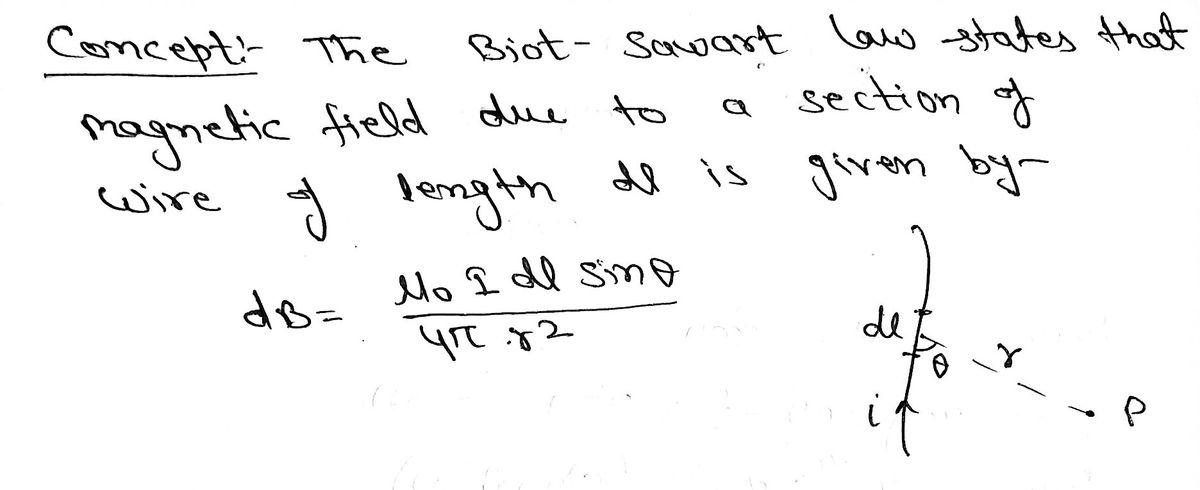 Concept:- The Biot- Savart law states that
magnetic field due to a section of
wire of length dl is given by-
dB= μ0 I dl sinθ
4π .r2
dl
θ
r
i
P